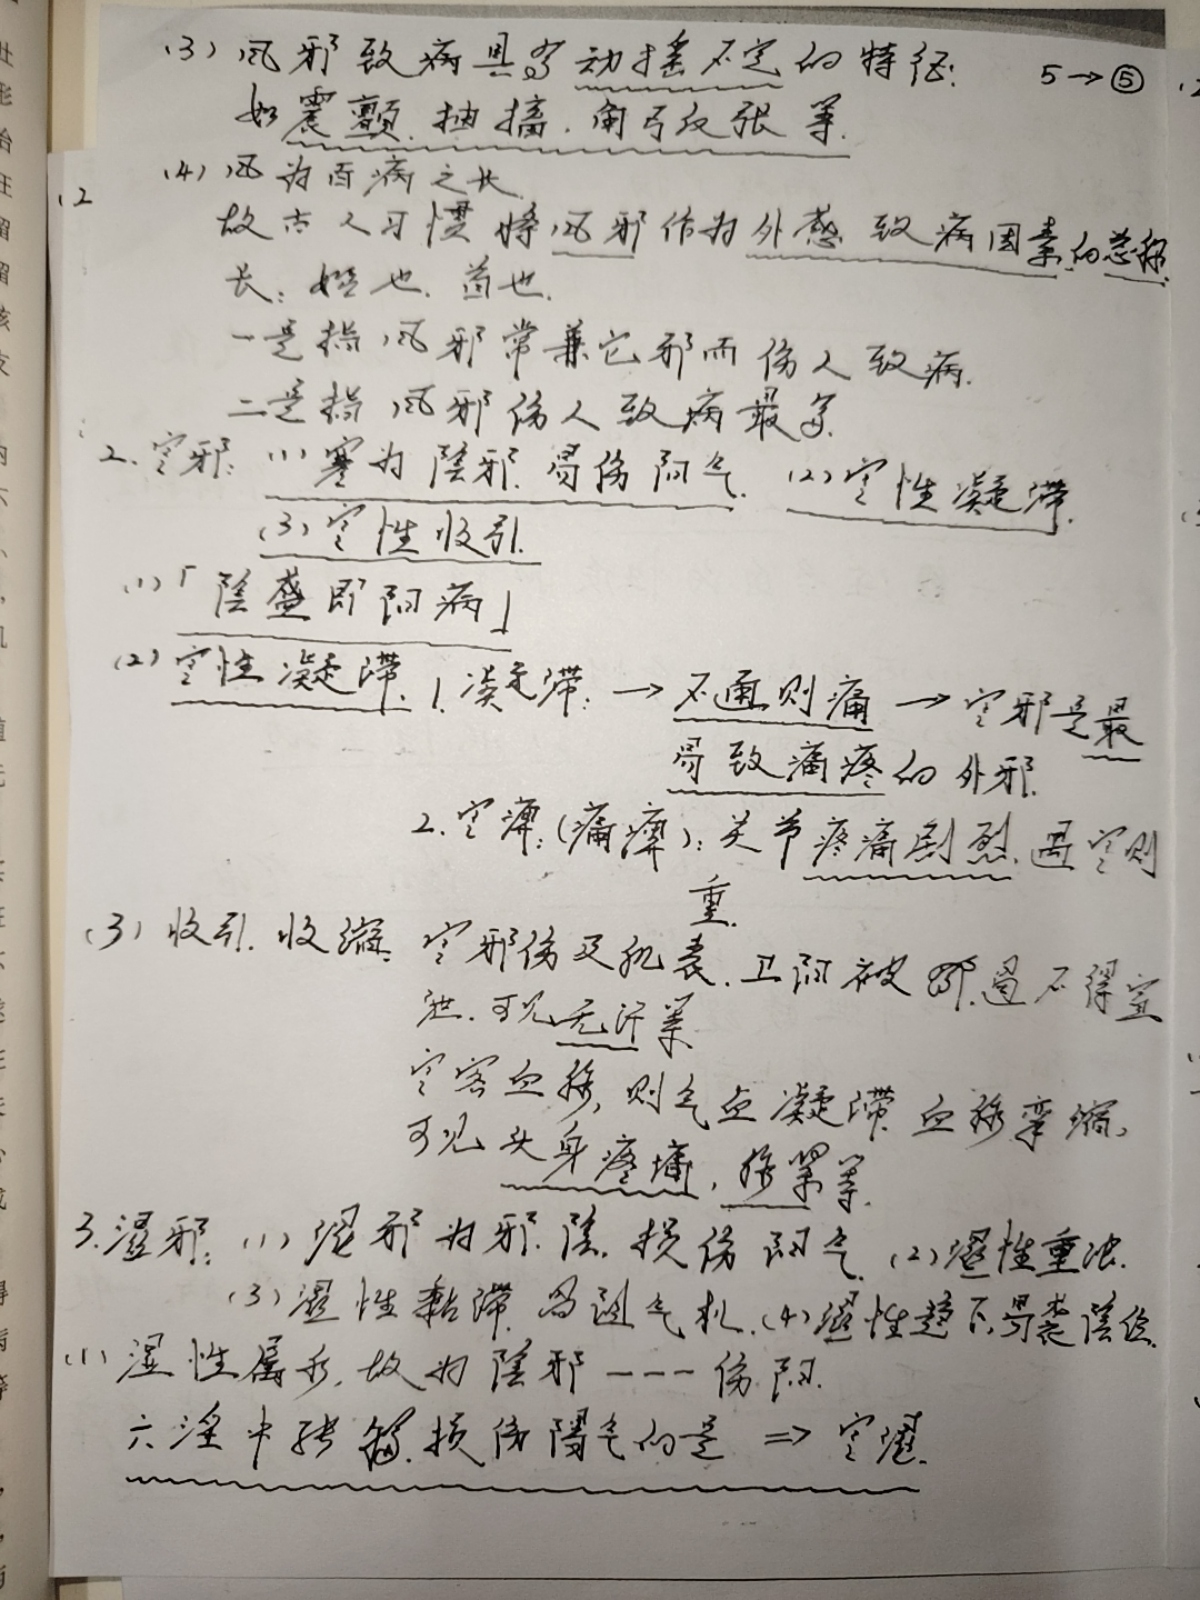 (3) 风邪致病具有动摇不定的特征:
5→⑤
如震颤.抽搐.角弓反张等.
(4) 风为百病之长
故古人习惯将风邪作为外感致病因素的总称
长:始也.首也.
一是指风邪常兼它邪而伤人致病.
二是指风邪伤人致病最多.
2.寒邪: (1) 寒为陰邪.易伤阳气. (2)寒性凝滞.
(3)寒性收引.
(1)「陰盛即阳病」
(2) 寒性凝滞. 1.凝滞: →不通则痛→寒邪是最
易致痛疼的外邪.
2.寒痹:(痛痹):关节疼痛剧烈.遇寒则
重.
(3) 收引.收缩. 寒邪伤及肌表.卫阳被 遏不得宣
泄.可见无汗等
寒客血脉,则气血凝滞 血脉挛缩,
可见头身疼痛,脉紧等.
3.湿邪: (1) 湿邪为邪.陰.损伤阳气. (2)湿性重浊.
(3)湿性黏滞.易阻气机.(4)湿性趋下.易袭陰位.
(1) 湿性属水,故为陰邪---伤阳.
六淫中 损伤陽气的是 ⇒ 寒湿.